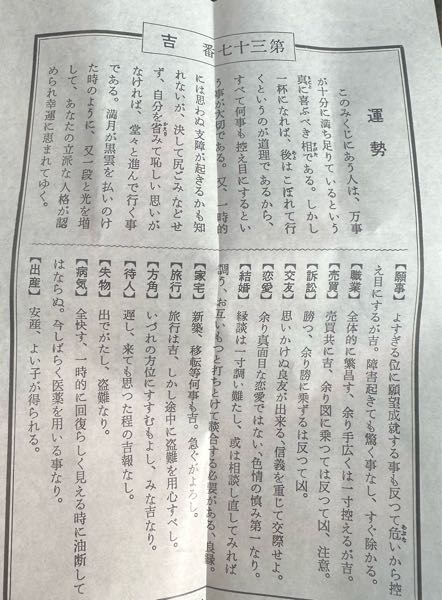 第三十七番 吉
運勢
このみくじにあう人は、万事
が十分に満ち足りているという
真に喜ぶべき相である。しかし
一杯になれば、後はこぼれて行
くというのが道理であるから、
すべて何事も控え目にするとい
う事が大切である。又、一時的
には思わぬ支障が起きるかも知
れないが、決して尻ごみなどせ
ず、自分を省みて恥しい思いが
なければ、堂々と進んで行く事
である。満月が黒雲を払いのけ
た時のように、又一段と光を増
して、あなたの立派な人格が認
められ幸運に恵まれてゆく。
【願事】よすぎる位に願望成就する事も反つて危いから控
え目にするが吉。障害起きても驚く事なし、すぐ除かる。
【職業】全体的に繁昌す、余り手広くは一寸控えるが吉。
【売買】売買共に吉、余り図に乗つては反つて凶、注意。
【訴訟】勝つ、余り勝に乗ずるは反つて凶。
【交友】思いかけぬ良友が出来る、信義を重じて交際せよ。
【恋愛】余り真面目な恋愛ではない、色情の慎み第一なり。
【結婚】縁談は一寸調い難たし、或は相談し直してみれば
調う、お互いもつと打ちとけて談合する必要がある、良縁。
【家宅】新築、移転等何事も吉。急ぐがよろし。
【旅行】旅行は吉、しかし途中に盗難を用心すべし。
【方角】いづれの方位にすすむもよし、みな吉なり。
【待人】遅し、来ても思つた程の吉報なし。
【失物】出でがたし、盗難なり。
【病気】全快す、一時的に回復らしく見える時に油断して
はならぬ。今しばらく医薬を用いる事なり。
【出産】安産、よい子が得られる。